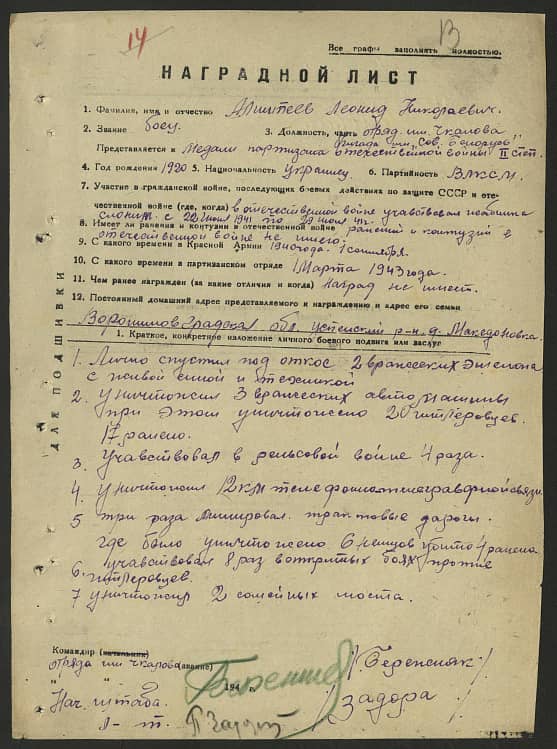 14
13
Все графы заполнять полностью.
НАГРАДНОЙ ЛИСТ
1. Фамилия, имя и отчество Алинтеев Леонид Николаевич.
2. Звание боец 3. Должность, часть отряд. им. Чкалова
бригада им. "Сов. Белорус",
Представляется к Медали партизана отечественной войны II степ.
4. Год рождения 1920 5. Национальность Украинец 6. Партийность ВЛКСМ
7. Участие в гражданской войне, последующих боевых действиях по защите СССР и оте-
чественной войне (где, когда) в отечественной войне учавствовал
слоним. с 22 июня 1941 по 29 июня
8. Имеет ли ранения и контузии в отечественной войне ранений и контузий в
отечественной войне не имеет.
9. С какого времени в Красной Армии 1940 года. 1 сентября.
10. С какого времени в партизанском отряде 1 Марта 1943 года.
11. Чем ранее награжден (за какие отличия и когда) Наград не имеет.
12. Постоянный домашний адрес представляемого к награждению и адрес его семьи
Ворошиловградская обл. успенский р-н д. Македоновка.
1. Краткое, конкретное изложение личного боевого подвига или заслуг
1. Лично спустил под откос 2 вражеских эшелона
с живой силой и техникой
2. уничтожил 3 вражеских автомашины
при этом уничтожено 20 гитлеровцев.
17 ранено.
3. Учавствовал в рельсовой войне 4 раза.
4. уничтожил 12 км телефонно телеграфной связи
5 три раза минировал тракторые дороги.
где было уничтожено 6 немцев убито 4 ранено
6. учавствовал 8 раз в открытых боях против
гитлеровцев.
7 уничтожил 2 моста.
ДЛЯ ПОДШИВКИ
Командир (начальник)
отряда им Чкалова (звание)
" " 194 г.
/Беренсняк/
Нач. штаба
л-т.
/Задора/